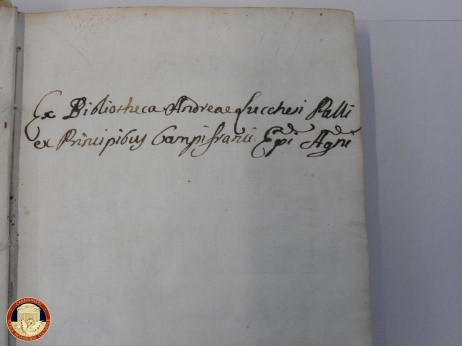 Ex Bibliotheca Andreae Lucchesi Palli
ex Principibus Campifranci Epi Agni